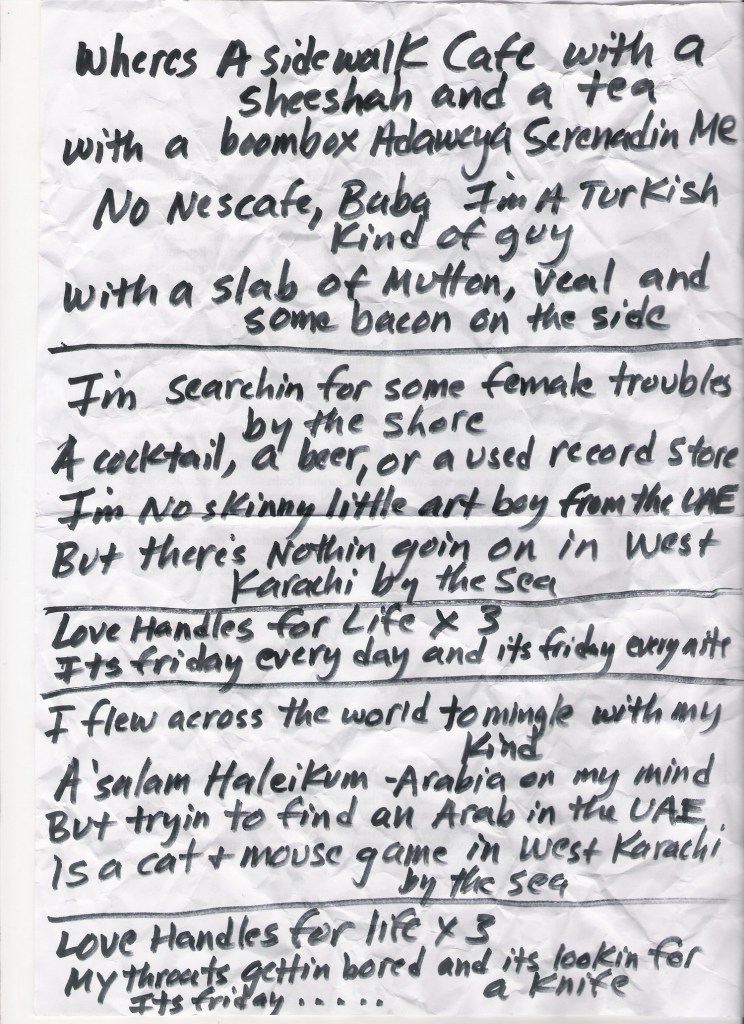 Wheres A sidewalk Cafe with a
sheeshah and a tea
with a boombox Adaweya Serenadin Me
No Nescafe, Baba I'm A Turkish
Kind of guy
with a slab of Mutton, veal and
some bacon on the side
I'm searchin for some female troubles
by the shore
A cocktail, a beer, or a used record Store
I'm No skinny little art boy from the UAE
But there's Nothin goin on in West
Karachi by the sea
Love Handles for Life x 3
Its friday every day and its friday every nite
I flew across the world to mingle with my
Kind
A'salam Haleikum - Arabia on my mind
But tryin to find an Arab in the UAE
Is a cat + mouse game in West Karachi
by the sea
Love Handles for life x 3
My throats gettin bored and its lookin for
a Knife
Its friday .....